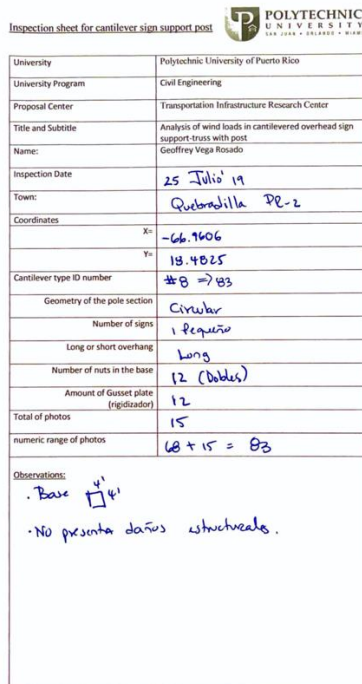 Inspection sheet for cantilever sign support post
POLYTECHNIC
UNIVERSITY
SAN JUAN • ORLANDO • MIAMI
University Polytechnic University of Puerto Rico
University Program Civil Engineering
Proposal Center Transportation Infrastructure Research Center
Title and Subtitle Analysis of wind loads in cantilevered overhead sign
support-truss with post
Name: Geoffrey Vega Rosado
Inspection Date 25 Julio' 19
Town: Quebradilla PR-2
Coordinates
X= -66.9606
Y= 18.4825
Cantilever type ID number #8 => 83
Geometry of the pole section Circular
Number of signs 1 Pequeño
Long or short overhang Long
Number of nuts in the base 12 (Dobles)
Amount of Gusset plate 12
(rigidizador)
Total of photos 15
numeric range of photos 68 + 15 = 83
Observations:
4'
. Base 4'
. No presenta daños estructurales.